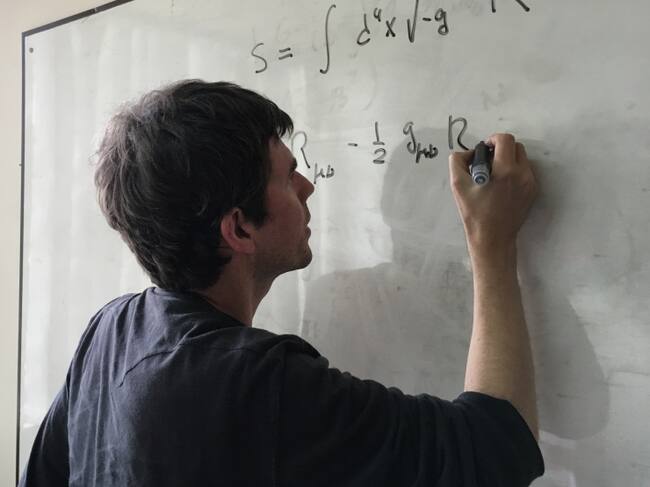 S = ∫ d⁴x √-g R
Rμν - 1/2 gμν R